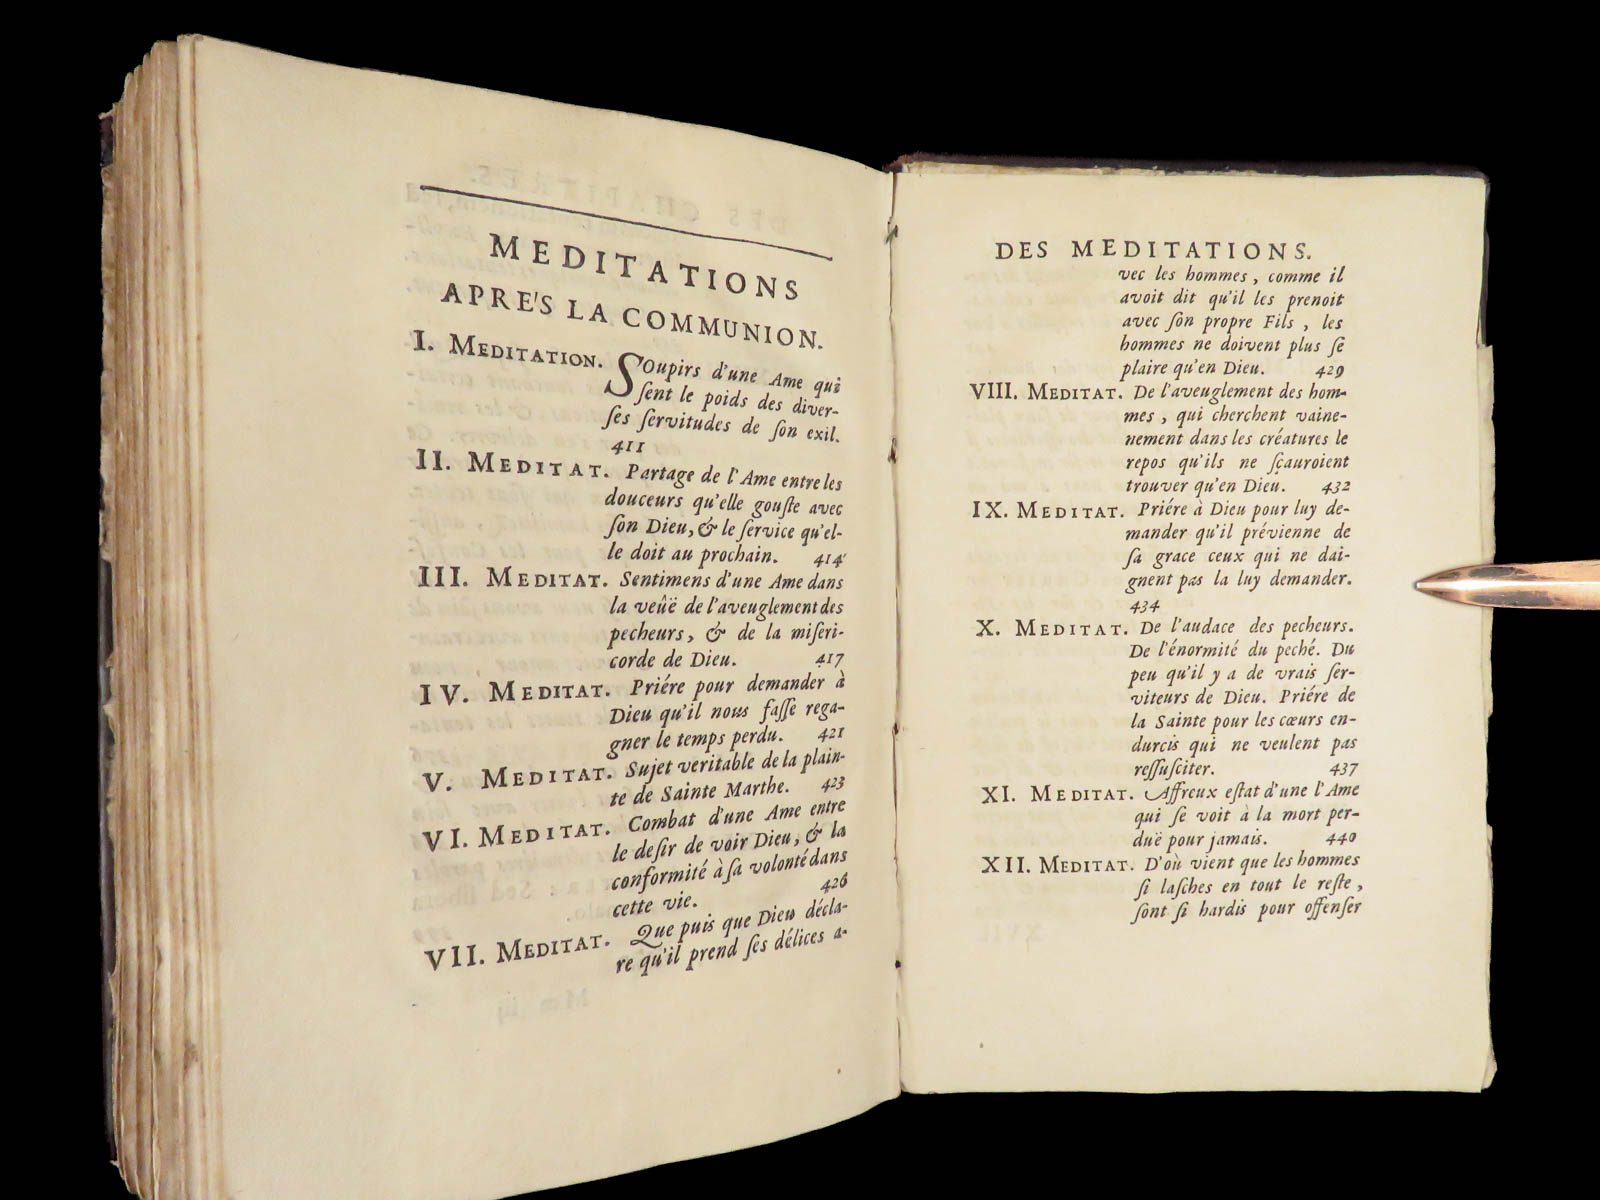 MEDITATIONS
APRE'S LA COMMUNION.
I. MEDITATION. SOupirs d'une Ame qui
ſent le poids des diver-
ſes ſervitudes de ſon exil.
411
II. MEDITAT. Partage de l'Ame entre les
douceurs qu'elle gouſte avec
ſon Dieu, & le ſervice qu'el-
le doit au prochain. 414
III. MEDITAT. Sentimens d'une Ame dans
la veûë de l'aveuglement des
pecheurs, & de la miſeri-
corde de Dieu. 417
IV. MEDITAT. Priére pour demander à
Dieu qu'il nous faſſe rega-
gner le temps perdu. 421
V. MEDITAT. Sujet veritable de la plain-
te de Sainte Marthe. 423
VI. MEDITAT. Combat d'une Ame entre
le deſir de voir Dieu, & la
conformité à ſa volonté dans
cette vie. 426
VII. MEDITAT. Que puis que Dieu décla-
re qu'il prend ſes délices a-
DES MEDITATIONS.
vec les hommes, comme il
avoit dit qu'il les prenoit
avec ſon propre Fils, les
hommes ne doivent plus ſe
plaire qu'en Dieu. 429
VIII. MEDITAT. De l'aveuglement des hom-
mes, qui cherchent vaine-
nement dans les créatures le
repos qu'ils ne ſçauroient
trouver qu'en Dieu. 432
IX. MEDITAT. Priére à Dieu pour luy de-
mander qu'il prévienne de
ſa grace ceux qui ne dai-
gnent pas la luy demander.
434
X. MEDITAT. De l'audace des pecheurs.
De l'énormité du peché. Du
peu qu'il y a de vrais ſer-
viteurs de Dieu. Priére de
la Sainte pour les cœurs en-
durcis qui ne veulent pas
reſſuſciter. 437
XI. MEDITAT. Affreux eſtat d'une l'Ame
qui ſe voit à la mort per-
duë pour jamais. 440
XII. MEDITAT. D'où vient que les hommes
ſi laſches en tout le reſte,
ſont ſi hardis pour offenſer